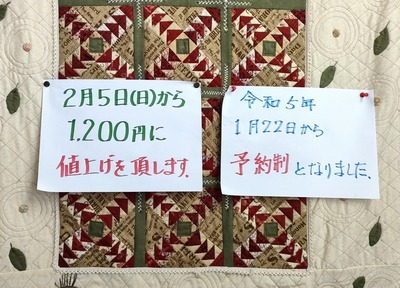 2月5日(日)から
1.200円に
値上げを頂します.
令和5年
1月22日から
予約制となりました.